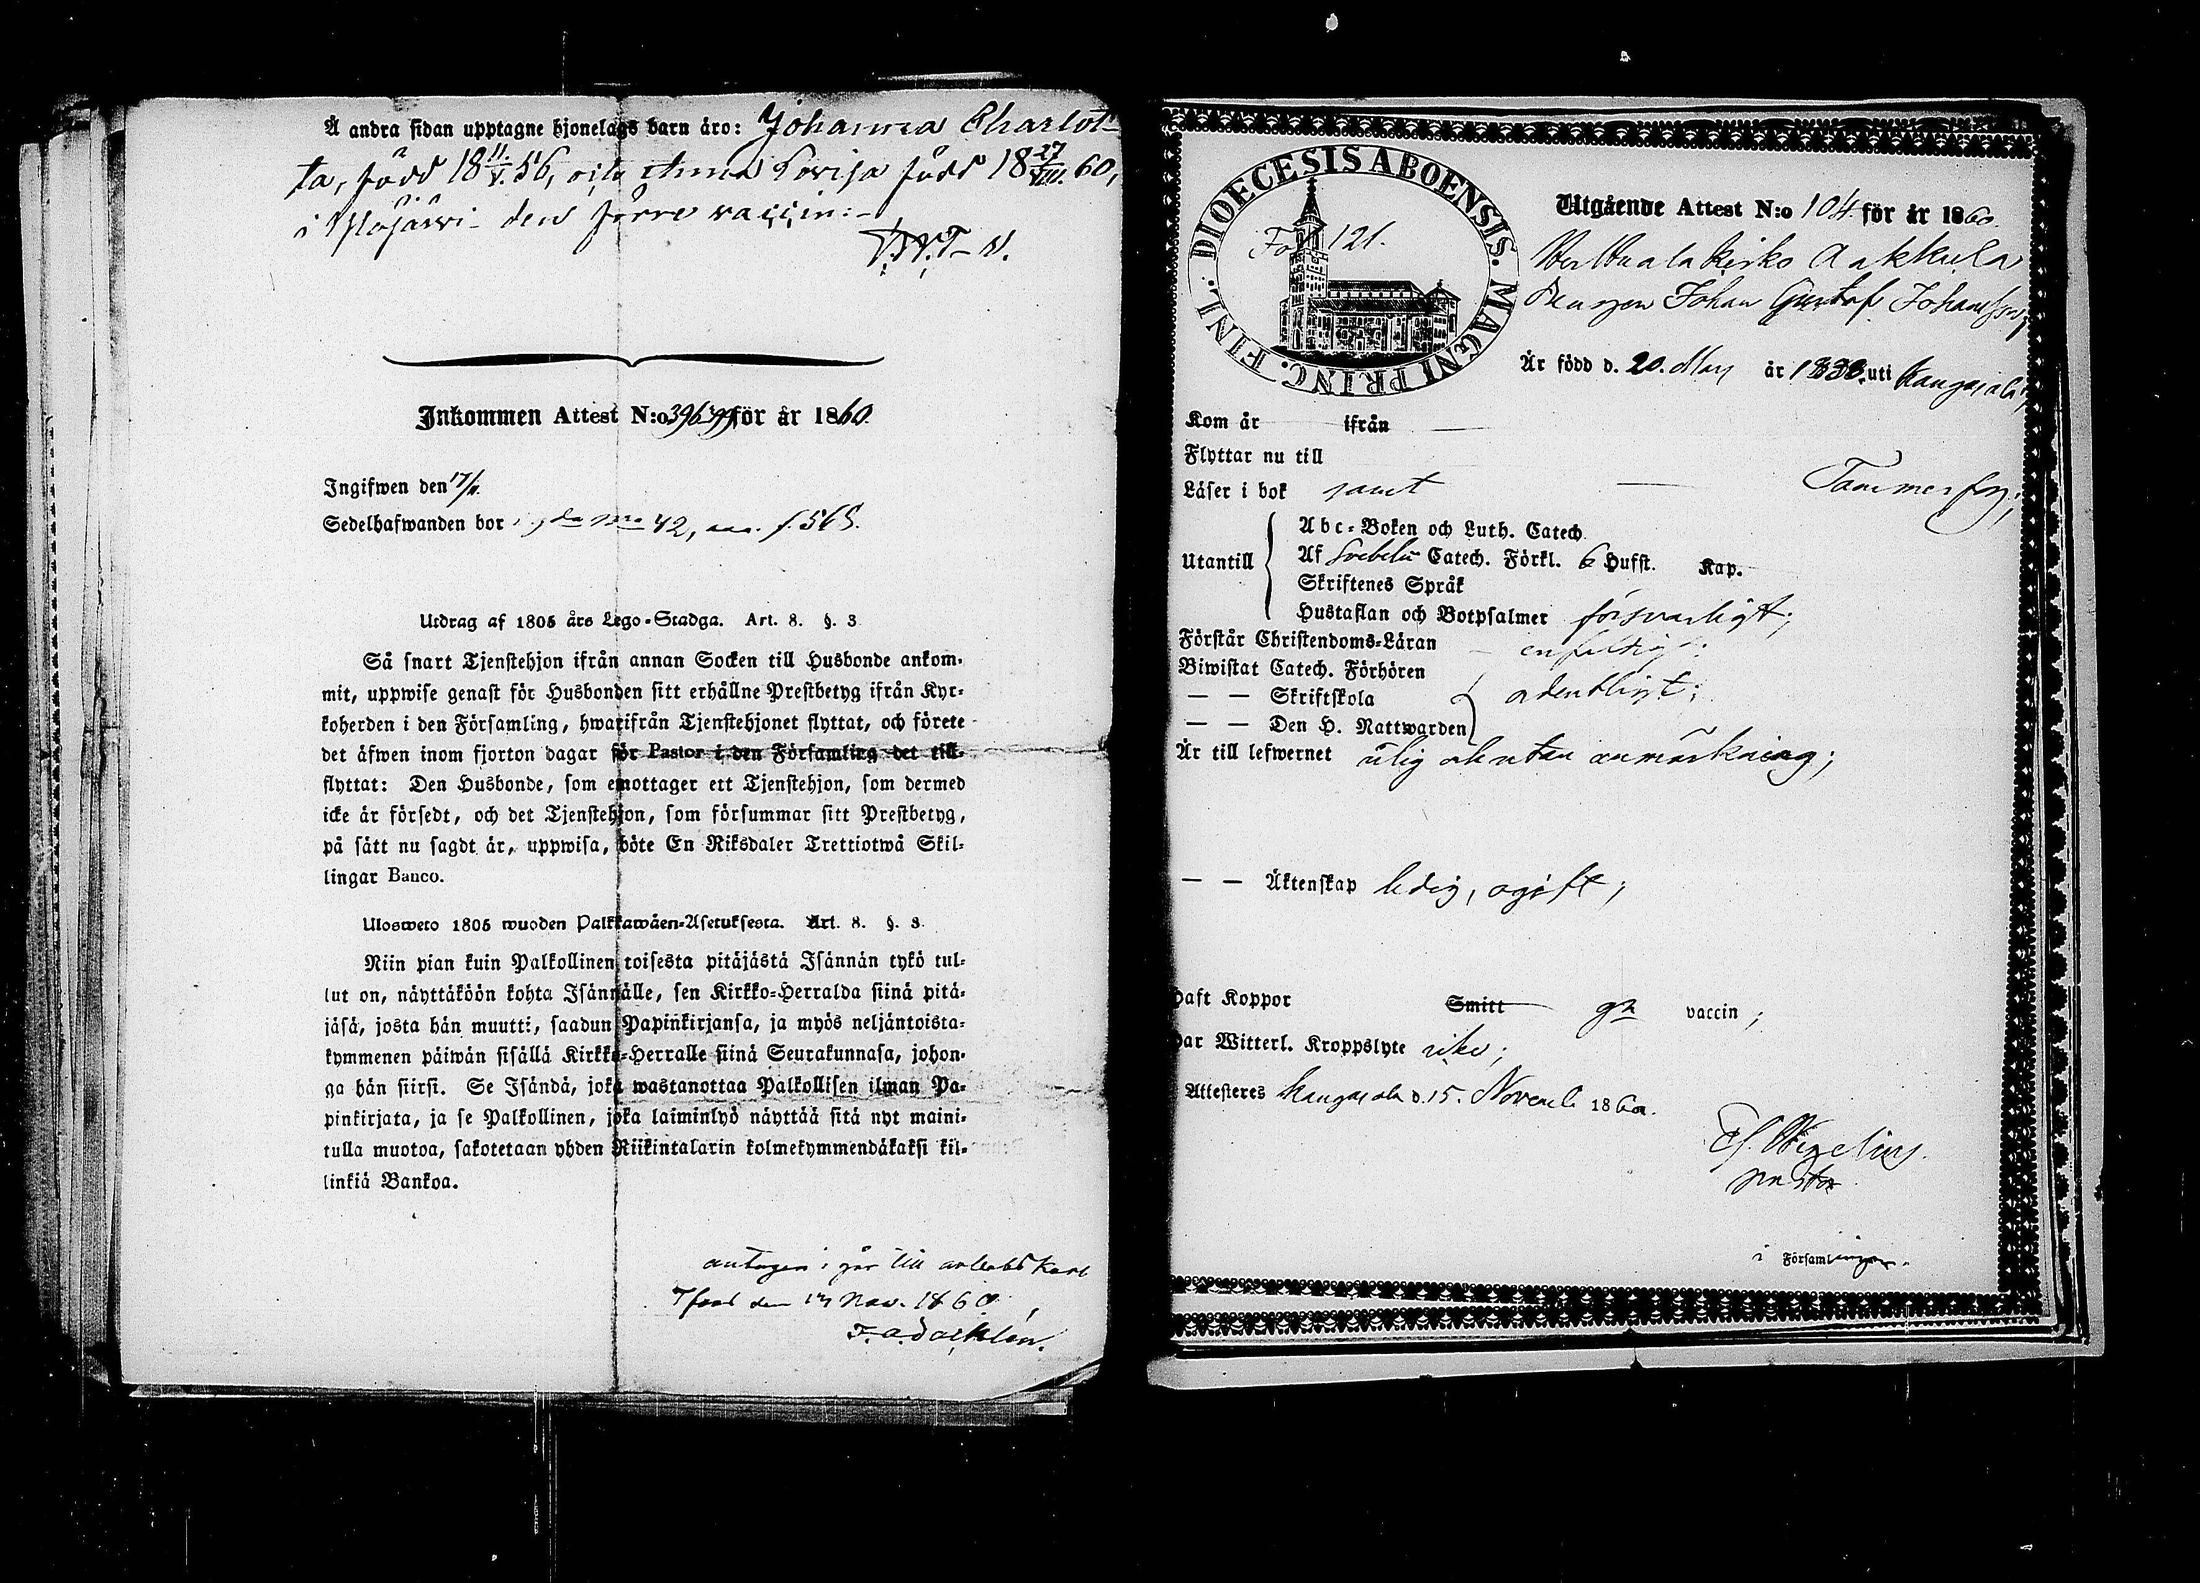 Å andra sidan upptagne hjonelags barn äro: Johanna Charlot-
ta, född 18 11/V. 56, och Anna Lovisa född 18 27/VIII. 60,
i Ylöjärvi - den förre vaccin:-
Inkommen Attest N:o 396 för år 1860.
Ingifwen den 17/11.
Sedelhafwanden bor 42, f. 565.
Utdrag af 1805 års Lego-Stadga. Art. 8. §. 3
Så snart Tjenstehjon ifrån annan Socken till Husbonde ankom-
mit, uppwise genast för Husbonden sitt erhållne Prestbetyg ifrån Kyr-
koherden i den Församling, hwarifrån Tjenstehjonet flyttat, och förete
det äfwen inom fjorton dagar för Pastor i den Församling det till-
flyttat: Den Husbonde, som emottager ett Tjenstehjon, som dermed
icke är försedt, och det Tjenstehjon, som försummar sitt Prestbetyg,
på sätt nu sagdt är, uppwisa, böte En Riksdaler Trettiotwå Skil-
lingar Banco.
Ulosweto 1805 wuoden Palkkawäen-Asetuksesta. Art. 8. §. 3
Niin pian kuin Palkollinen toisesta pitäjästä Isännän tykö tul-
lut on, näyttäköön kohta Isännälle, sen Kirkko-Herralda siinä pitä-
jäsä, josta hän muutti, saadun Papinkirjansa, ja myös neljäntoista-
kymmenen päiwän sisällä Kirkko-Herralle siinä Seurakunnasa, johon-
ga hän siirsi. Se Isändä, joka wastanottaa Palkollisen ilman Pa-
pinkirjata, ja se Palkollinen, joka laiminlyö näyttää sitä nyt maini-
tulla muotoa, sakotetaan yhden Riikintalarin kolmekymmendäkaksi kil-
linkiä Bankoa.
antagen i går till arbetskarl
Tfors den 17 Nov. 1860.
DIOECESIS ABOENSIS. MAGNI PRINC. FINL.
Fol. 121.
Utgående Attest N:o 104 för år 1860.
Aakkula
Drengen Johan Gustaf Johansson,
Är född d. 20. Maij år 1838. uti Kangasala,
Kom år ifrån
Flyttar nu till Tammerfors;
Läser i bok samt
Utantill
Abc-Boken och Luth. Catech.
Af Svebelii Catech. Förkl. 6 Hufst. Kap.
Skriftenes Språk
Hustaflan och Botpsalmer försvarligt;
Förstår Christendoms-Läran enfaldigt;
Biwistat Catech. Förhören
— — Skriftskola ordentligt;
— — Den H. Nattwarden
Är till lefwernet ärlig och utan anmärkning;
— — Äktenskap ledig, ogift;
Haft Koppor Smitt gn vaccin;
Har Witterl. Kroppslyte icke;
Attesteres Kangasala d. 15. Novemb. 1860.
pastor
i Församlingen.